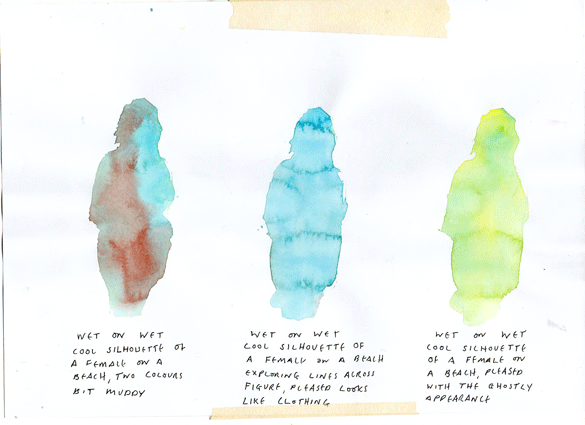 WET ON WET
COOL SILHOUETTE OF
A FEMALE ON A
BEACH, TWO COLOURS
BIT MUDDY
WET ON WET
COOL SILHOUETTE OF
A FEMALE ON A BEACH
EXPLORING LINES ACROSS
FIGURE, PLEASED LOOKS
LIKE CLOTHING
WET ON WET
COOL SILHOUETTE
OF A FEMALE ON
A BEACH, PLEASED
WITH THE GHOSTLY
APPEARANCE